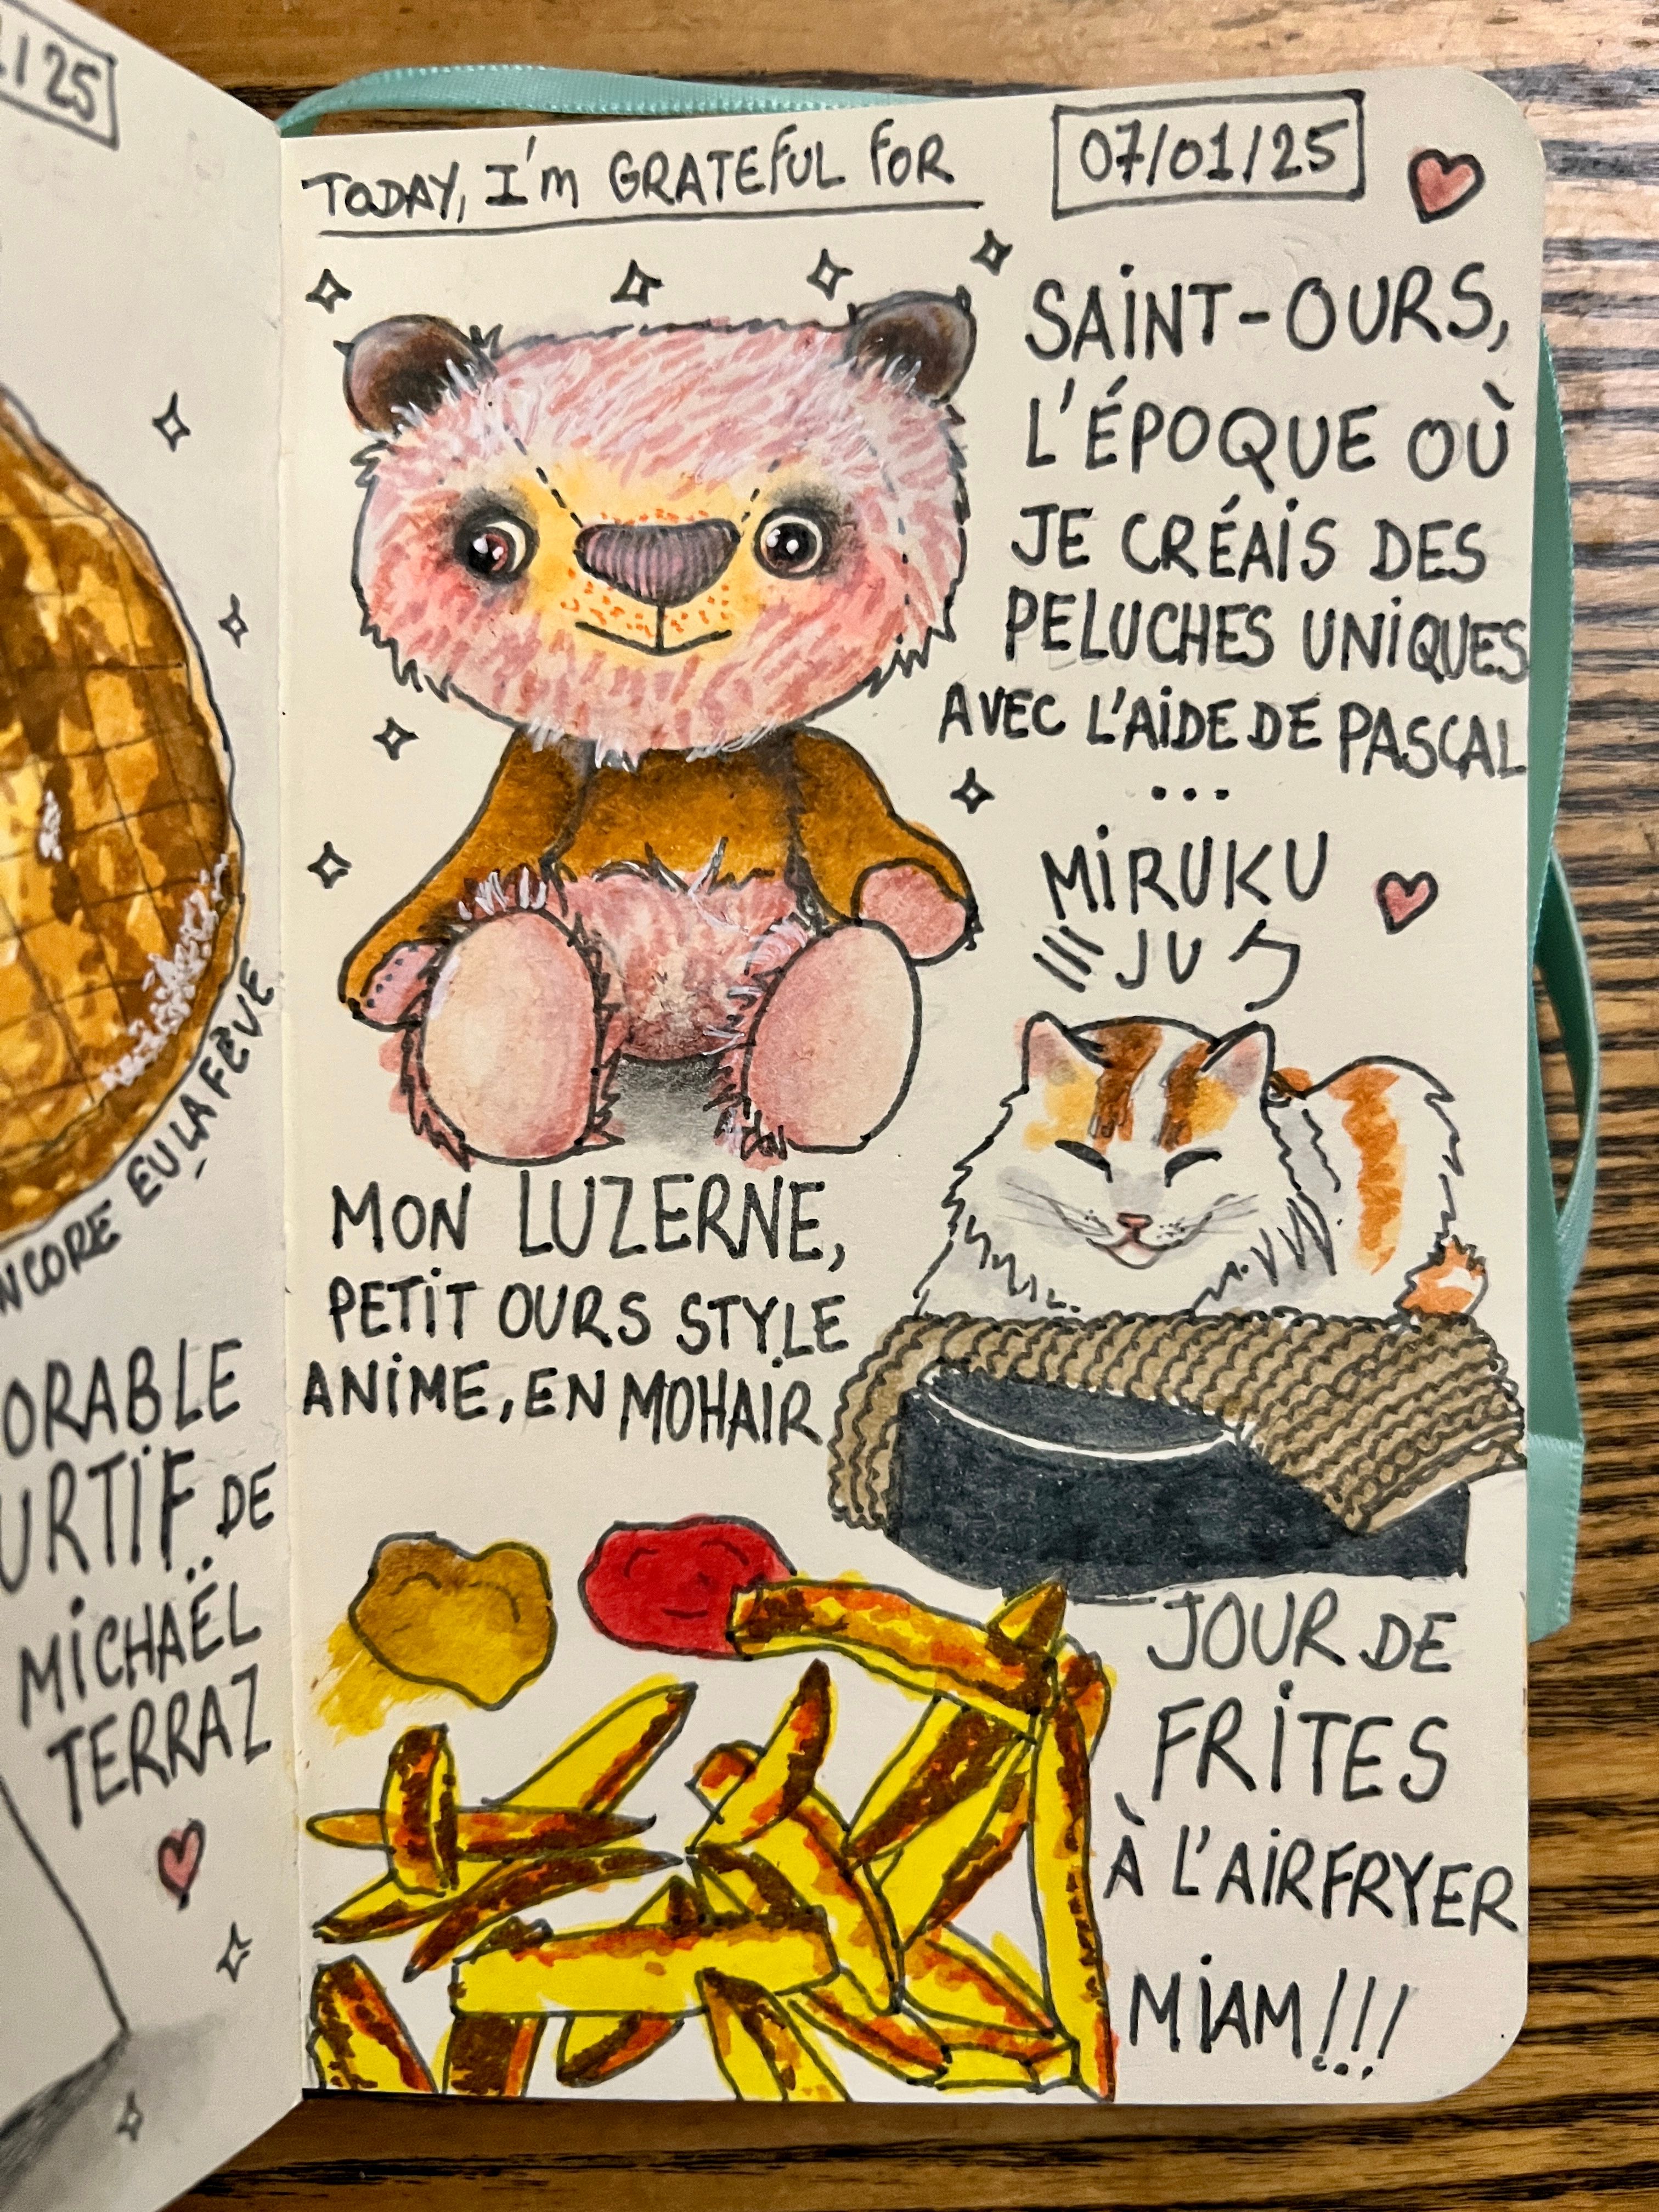 1/25
ENCORE EU LA FÈVE
DE
MICHAËL
TERRAZ
TODAY, I'm GRATEFUL FOR
07/01/25
SAINT-OURS,
L'ÉPOQUE OÙ
JE CRÉAIS DES
PELUCHES UNIQUES
AVEC L'AIDE DE PASCAL
...
MIRUKU
ミルク
MON LUZERNE,
PETIT OURS STYLE
ANIME, EN MOHAIR
JOUR DE
FRITES
À L'AIRFRYER
MIAM!!!